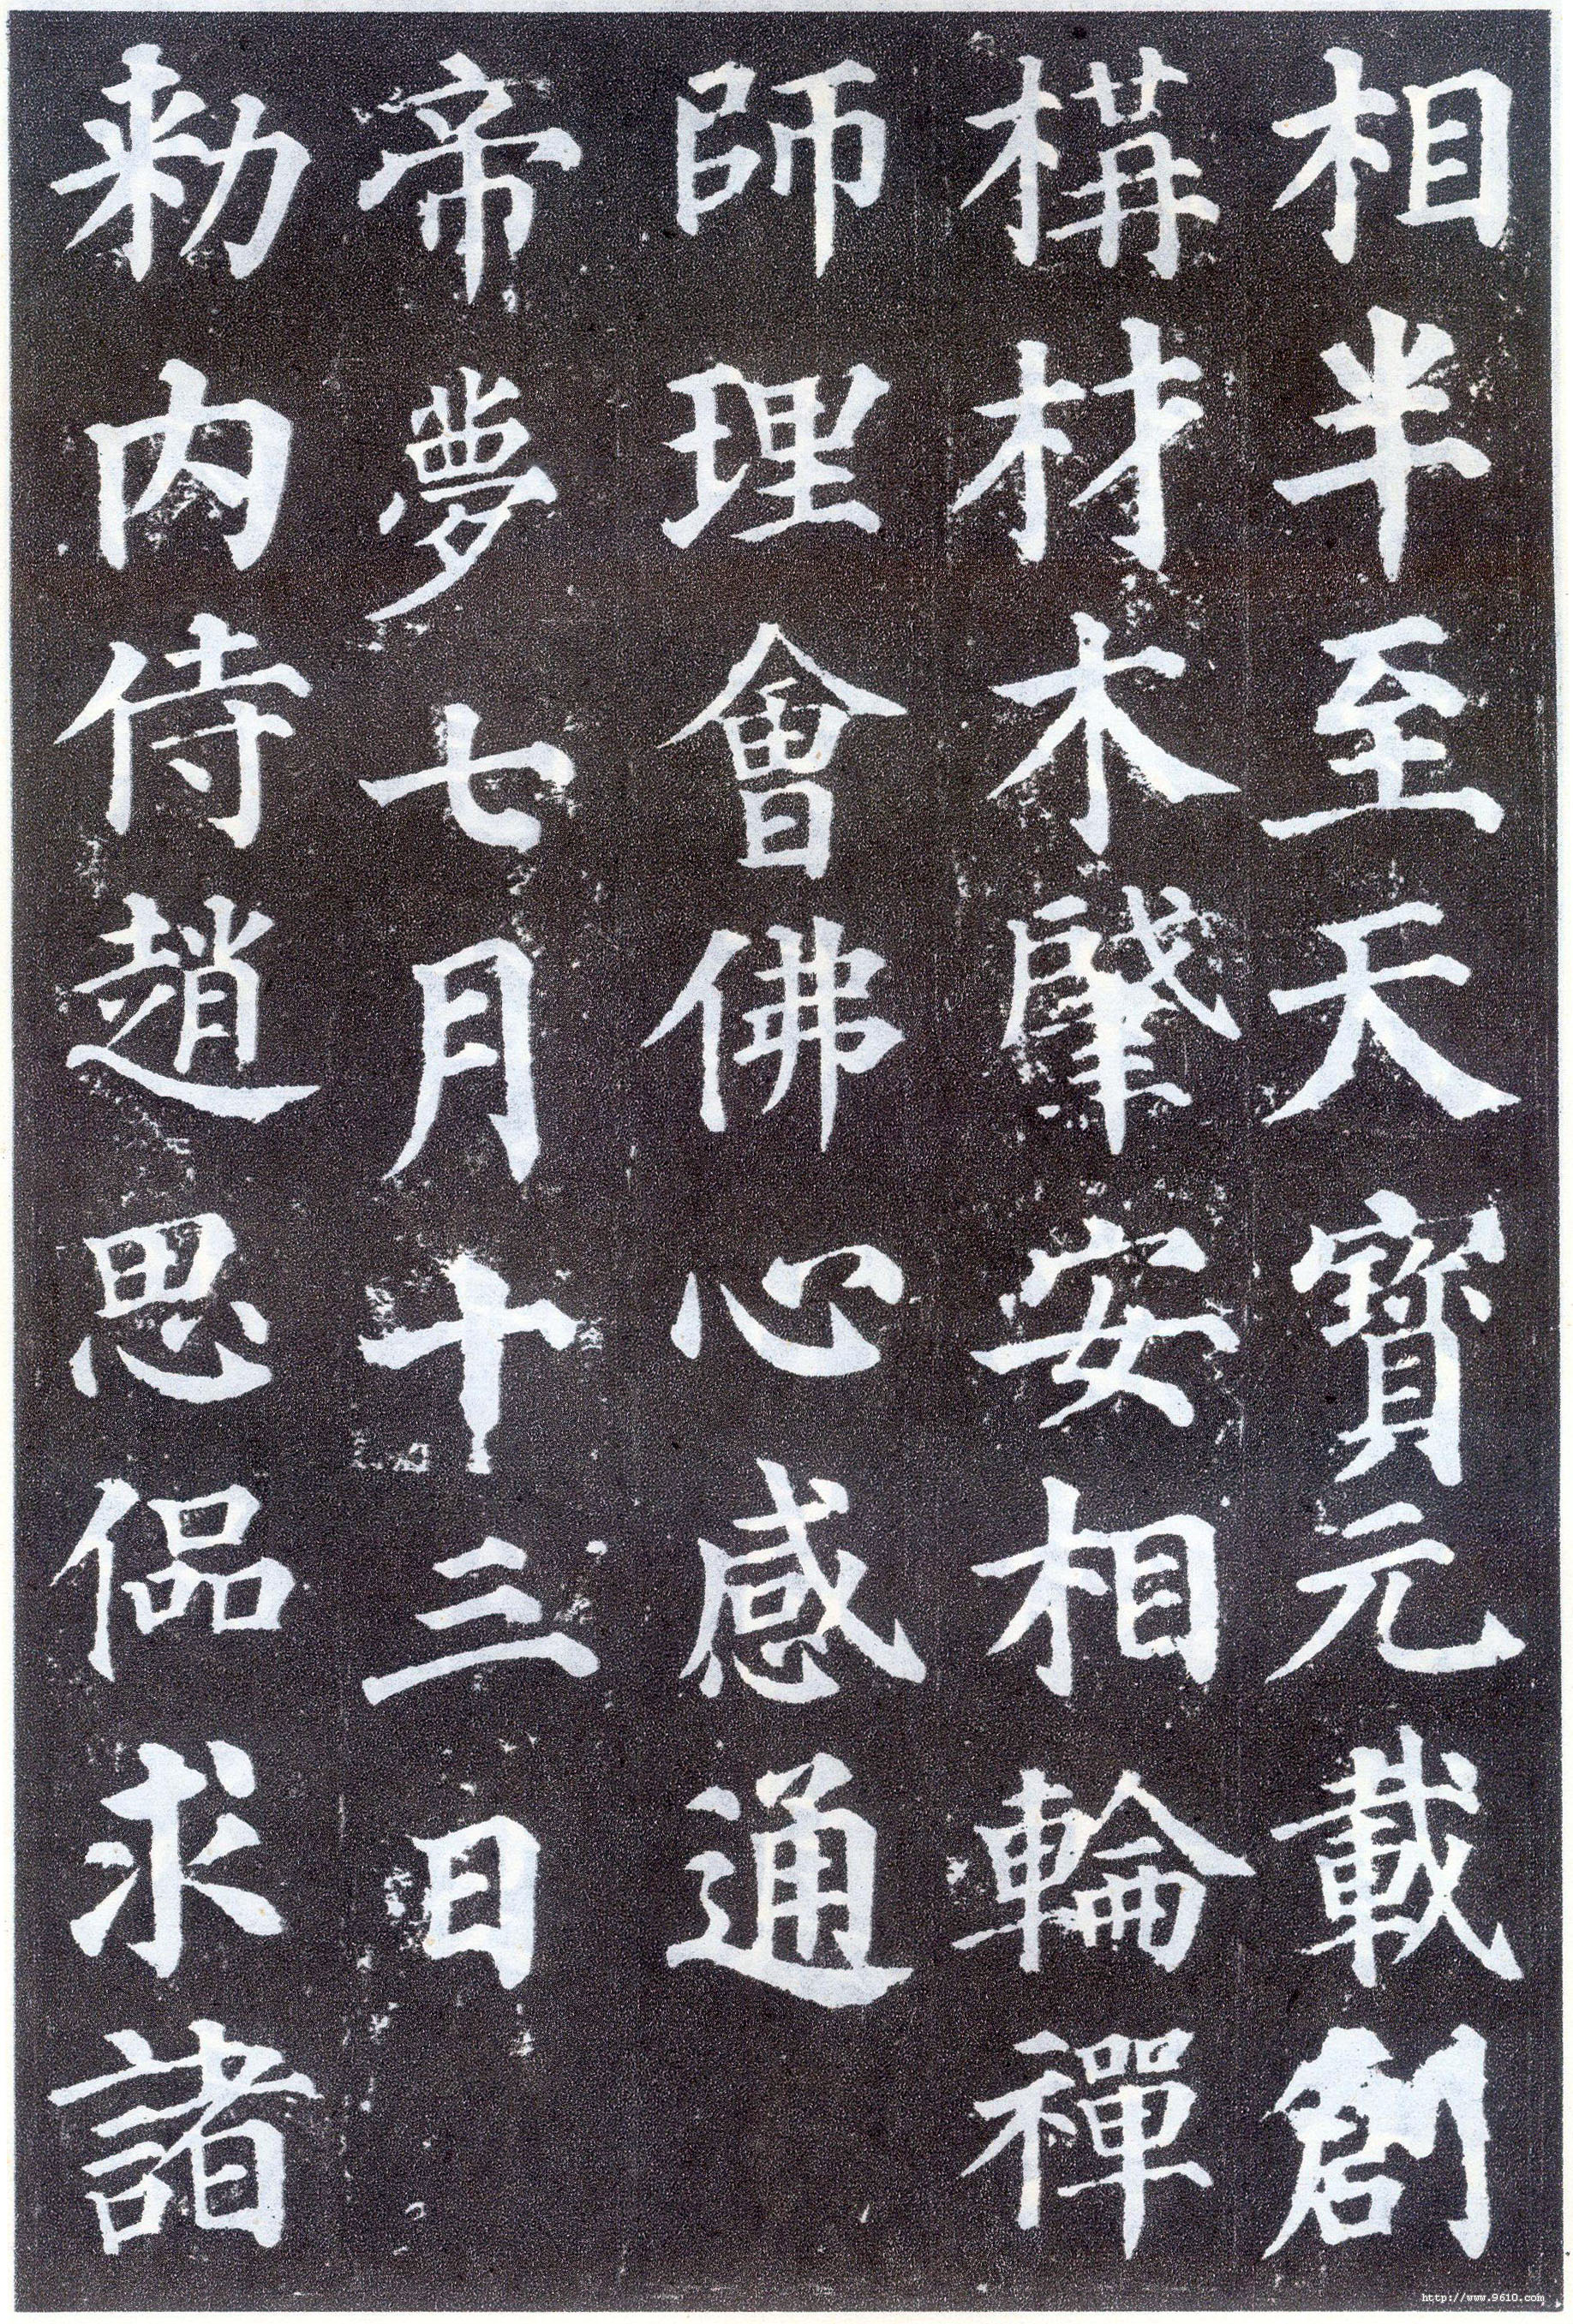 相半至天寶元載創
構材木肇安相輪禪
師理會佛心感通
帝夢七月十三日
勑內侍趙思偘求諸
http://www.9610.com